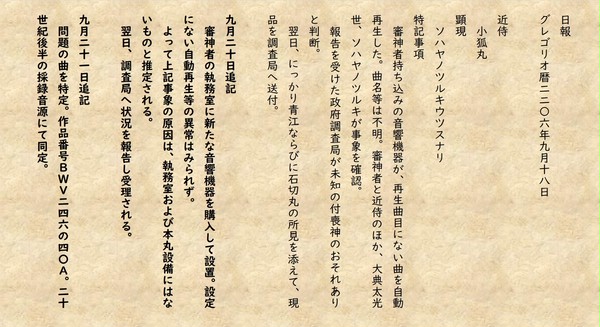 日報
グレゴリオ暦二二〇六年九月十八日
近侍
小狐丸
顕現
ソハヤノツルキウツスナリ
特記事項
審神者持ち込みの音響機器が、再生曲目にない曲を自動
再生した。曲名等は不明。審神者と近侍のほか、大典太光
世、ソハヤノツルキが事象を確認。
報告を受けた政府調査局が未知の付喪神のおそれあり
と判断。
翌日、にっかり青江ならびに石切丸の所見を添えて、現
品を調査局へ送付。
九月二十日追記
審神者の執務室に新たな音響機器を購入して設置。設定
にない自動再生等の異常はみられず。
よって上記事象の原因は、執務室および本丸設備にはな
いものと推定される。
翌日、調査局へ状況を報告し受理される。
九月二十一日追記
問題の曲を特定。作品番号ＢＷＶ二四六の四〇Ａ。二十
世紀後半の採録音源にて同定。